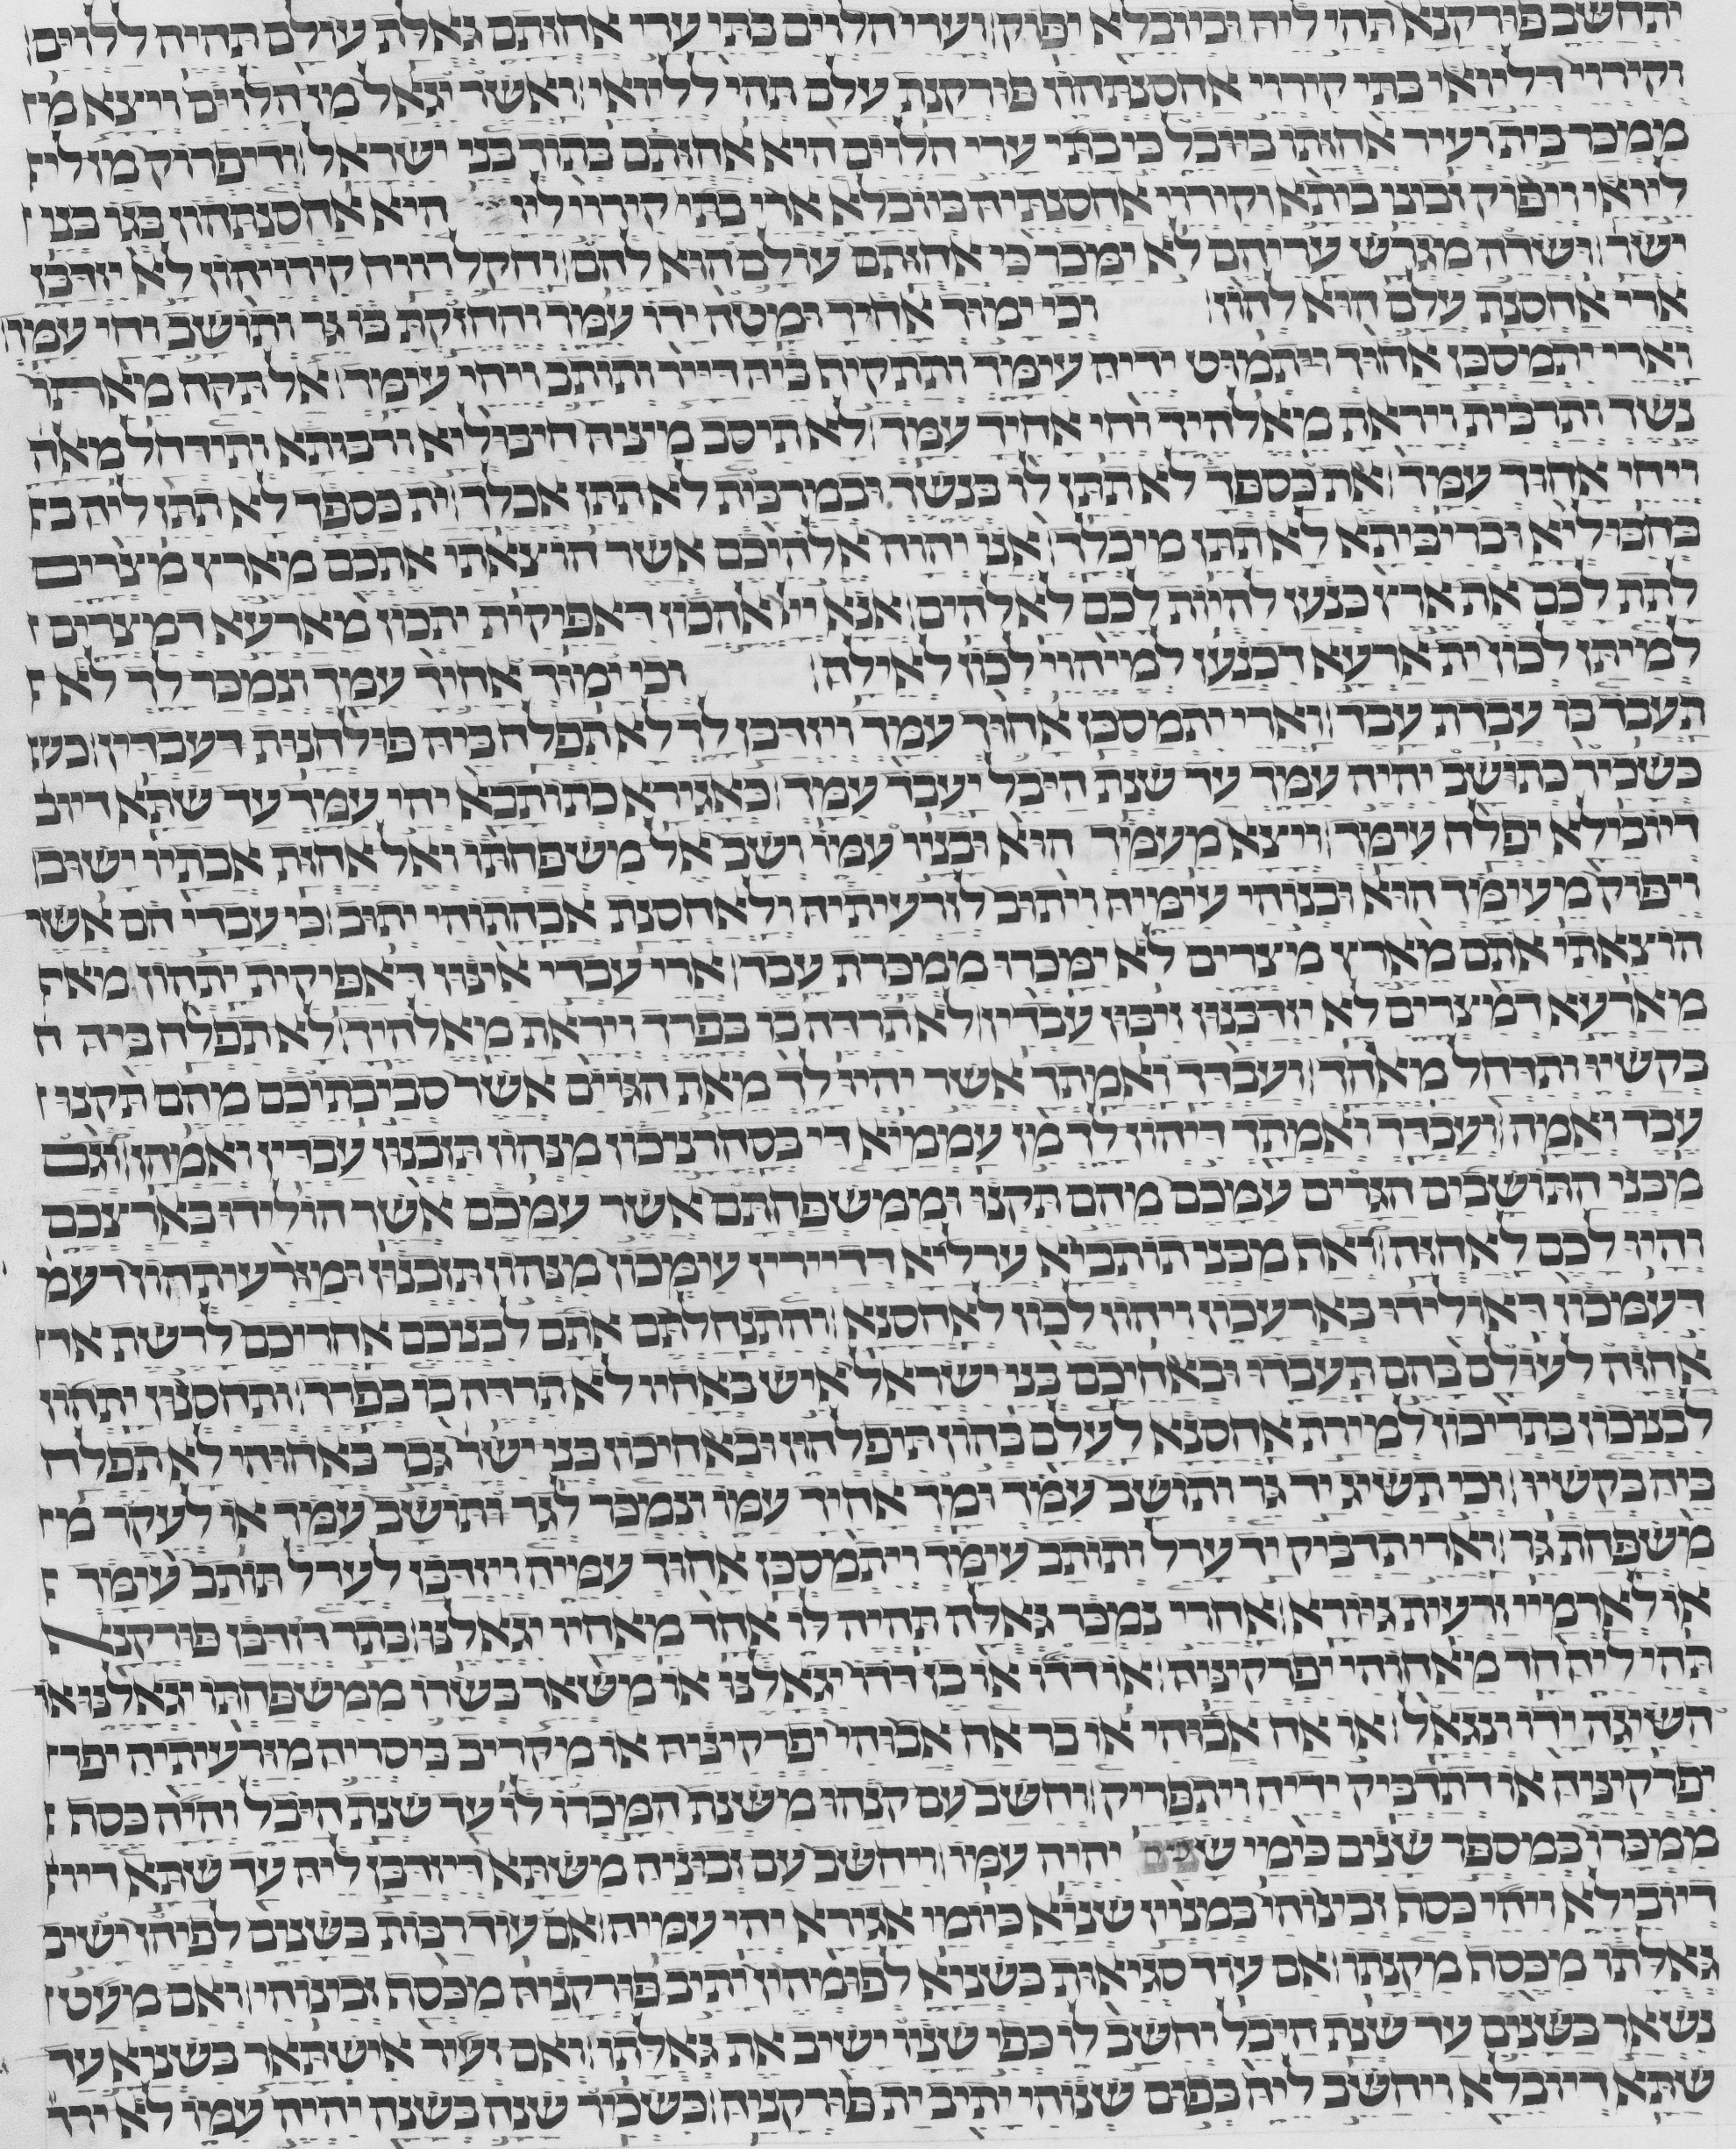 יתחשב פורקנא תהי ליה וביובלא יפוק׃ וערי הלוים בתי ערי אחזתם גאלת עולם תהיה ללוים׃
וקירוי דליואי בתי קירוי אחסנתהון פורקנת עלם תהי לליואי׃ ואשר יגאל מן הלוים ויצא מ
ממכר בית ועיר אחזתו ביובל כי בתי ערי הלוים היא אחזתם בתוך בני ישראל׃ ודיפרוק מן לי
ליואי ויפוק זביני ביתא וקירוי אחסנתיה ביובלא ארי בתי קירוי ליו היא אחסנתהון בגו בני
ישר׃ ושדה מגרש עריהם לא ימכר כי אחזת עולם הוא להם׃ וחקל רווח קירויהון לא יזדבן
ארי אחסנת עלם הוא להון׃ וכי ימוך אחיך ומטה ידו עמך והחזקת בו גר ותושב וחי עמך׃
וארי יתמסכן אחוך ותמוט ידיה עימך ותתקיף ביה דייר ותותב וייחי עימך׃ אל תקח מאתו
נשך ותרבית ויראת מאלהיך וחי אחיך עמך׃ לא תיסב מיניה חיבוליא ורבותא ותידחל מאלה
וייחי אחוך עמך׃ את כספך לא תתן לו בנשך ובמרבית לא תתן אכלך׃ ית כספך לא תתן ליה ב
בחבוליא ובריביתא לא תתן מיכלך׃ אני יהוה אלהיכם אשר הוצאתי אתכם מארץ מצרים
לתת לכם את ארץ כנען להיות לכם לאלהים׃ אנא ייי אלהכון דאפיקית יתכון מארעא דמצרים
למיתן לכון ית ארעא דכנען למיהוי לכון לאילה׃ וכי ימוך אחיך עמך ונמכר לך לא
תעבד בו עבדת עבד׃ וארי יתמסכן אחוך עמך ויזדבן לך לא תפלח ביה פולחנות דעבדין׃
כשכיר כתושב יהיה עמך עד שנת היובל יעבד עמך׃ כאגירא כתותבא יהי עמך עד שתא דיוב
דיובילא יפלח עימך׃ ויצא מעמך הוא ובניו עמו ושב אל משפחתו ואל אחזת אבתיו ישוב׃
ויפוק מעימך הוא ובנוהי עימיה ויתוב לזרעיתיה ולאחסנת אבהתוהי יתוב׃ כי עבדי הם אשר
הוצאתי אתם מארץ מצרים לא ימכרו ממכרת עבד׃ ארי עבדי אינון דאפיקית יתהון מאר
מארעא דמצרים לא יזדבנון זיבון עבדין׃ לא תרדה בו בפרך ויראת מאלהיך׃ לא תפלח ביה
בקשיו ותדחל מאלהך׃ ועבדך ואמתך אשר יהיו לך מאת הגוים אשר סביבתיכם מהם תקנו
עבד ואמה׃ ועבדך ואמתך דיהון לך מן עממיא די בסחרניכון מנהון תזבנון עבדין ואמהן׃ וגם
מבני התושבים הגרים עמכם מהם תקנו וממשפחתם אשר עמכם אשר הולידו בארצכם
והיו לכם לאחזה׃ ואף מבני תותביא ערליא דדיירין עימכון מנהון תזבנון ומזרעיתהון דעמ
דעמכון דאולידו בארעכון ויהון לכון לאחסנא׃ והתנחלתם אתם לבניכם אחריכם לרשת ארץ
אחזה לעולם בהם תעבדו ובאחיכם בני ישראל איש באחיו לא תרדה בו בפרך׃ ותחסנון יתהון
לבניכון בתריכון למירת אחסנא לעלם בהון תיפלחון ובאחיכון בני ישר גבר באחוהי לא תפלח
ביה בקשיו׃ וכי תשיג יד גר ותושב עמך ומך אחיך עמו ונמכר לגר ותושב עמך או לעקר מ
משפחת גר׃ וארי תדביק יד ערל ותותב עימך ויתמסכן אחוך עמיה ויזדבן לערל תותב עימך
או לארמיי זרעית גיורא׃ אחרי נמכר גאלה תהיה לו אחד מאחיו יגאלנו׃ בתר דיזדבן פורקנא
תהי ליה חד מאחוהי יפרקיניה׃ או דדו או בן דדו יגאלנו או משאר בשרו ממשפחתו יגאלנו או
השיגה ידו ונגאל׃ או אח אבוהי או בר אח אבוהי יפרקיניה או מקריב ביסריה מזרעיתיה יפר
יפרקיניה או דתדביק ידיה ויתפריק׃ וחשב עם קנהו משנת המכרו לו עד שנת היבל והיה כסף
ממכרו במספר שנים כימי ש יהיה עמו׃ ויחשב עם זבוניה משתא דיזדבן ליה עד שתא דיו
דיובילא ויהי כסף זבינוהי במנין שניא כיומי אגירא יהי עמיה׃ אם עוד רבות בשנים לפיהן ישיב
גאלתו מכסף מקנתו׃ אם עוד סגיאות בשניא לפומהין יתיב פורקניה מכסף זבינוהי׃ ואם מעט
נשאר בשנים עד שנת היבל וחשב לו כפי שניו ישיב את גאלתו׃ ואם זעיר אישתאר בשניא עד
שתא דיובלא ויחשב ליה כפום שנוהי יתיב ית פורקניה׃ כשכיר שנה בשנה יהיה עמו לא ירד